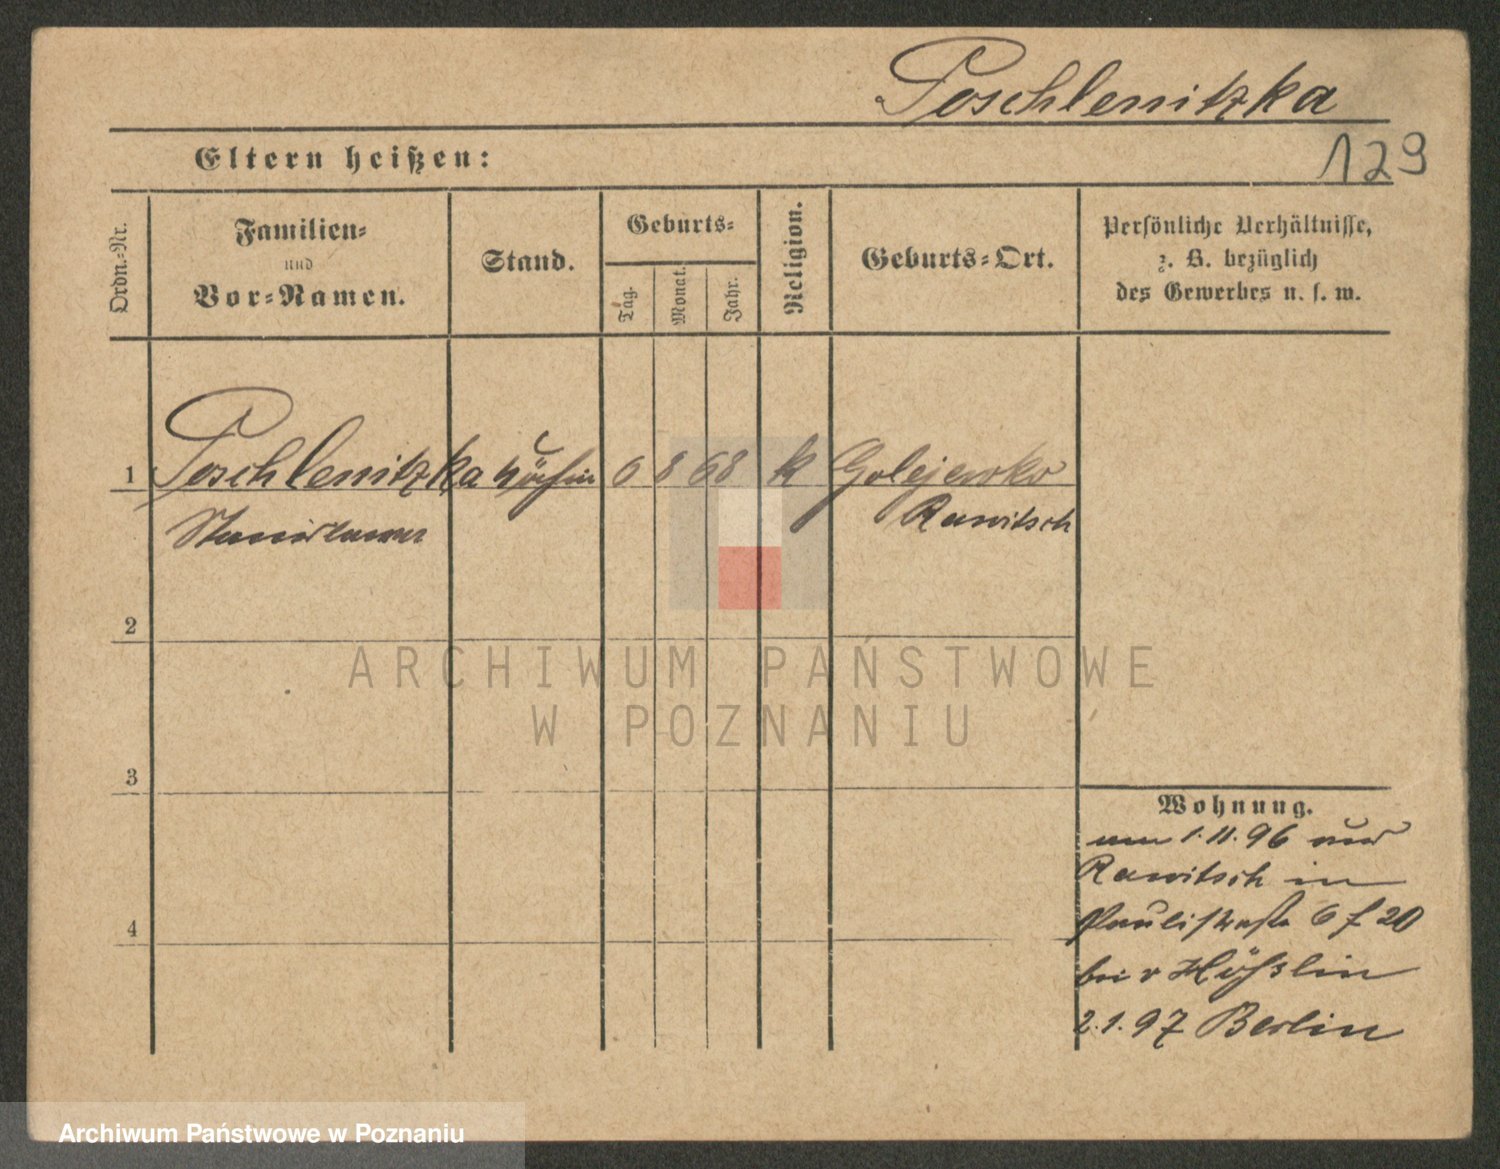 Poschlenitzka
129
Eltern heißen:
Ordn.-Nr.
Familien-
und
Vor-Namen.
Stand.
Geburts-
Tag.
Monat.
Jahr.
Religion.
Geburts-Ort.
Persönliche Verhältnisse,
z. B. bezüglich
des Gewerbes u. s. w.
1 Poschlenitzka Köchin 6 8 68 k Golejewko
Stanislawa Rawitsch
2
3
4
Wohnung.
am 1.11.96 aus
Rawitsch in
Paulistraße 6 f 20
bei v
2.1.97 Berlin
ARCHIWUM PAŃSTWOWE
W POZNANIU
Archiwum Państwowe w Poznaniu